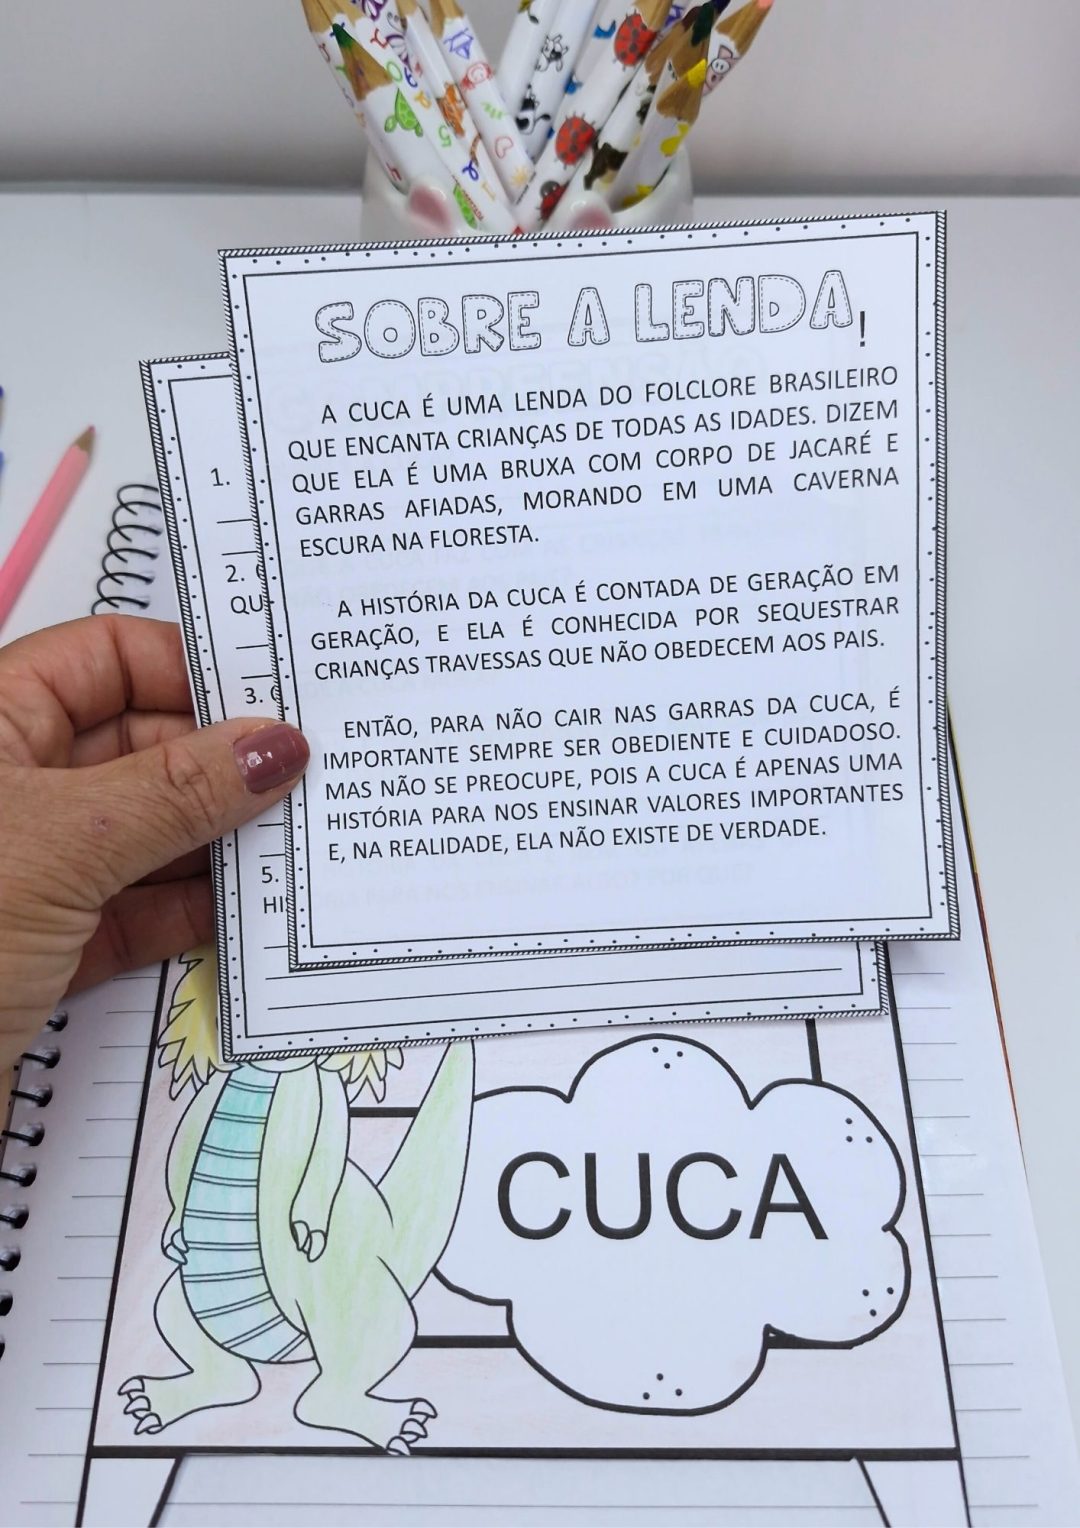 SOBRE A LENDA!
A CUCA É UMA LENDA DO FOLCLORE BRASILEIRO
QUE ENCANTA CRIANÇAS DE TODAS AS IDADES. DIZEM
QUE ELA É UMA BRUXA COM CORPO DE JACARÉ E
GARRAS AFIADAS, MORANDO EM UMA CAVERNA
ESCURA NA FLORESTA.
A HISTÓRIA DA CUCA É CONTADA DE GERAÇÃO EM
GERAÇÃO, E ELA É CONHECIDA POR SEQUESTRAR
CRIANÇAS TRAVESSAS QUE NÃO OBEDECEM AOS PAIS.
ENTÃO, PARA NÃO CAIR NAS GARRAS DA CUCA, É
IMPORTANTE SEMPRE SER OBEDIENTE E CUIDADOSO.
MAS NÃO SE PREOCUPE, POIS A CUCA É APENAS UMA
HISTÓRIA PARA NOS ENSINAR VALORES IMPORTANTES
E, NA REALIDADE, ELA NÃO EXISTE DE VERDADE.
1.
2.
QU
3.
5.
HI
CUCA